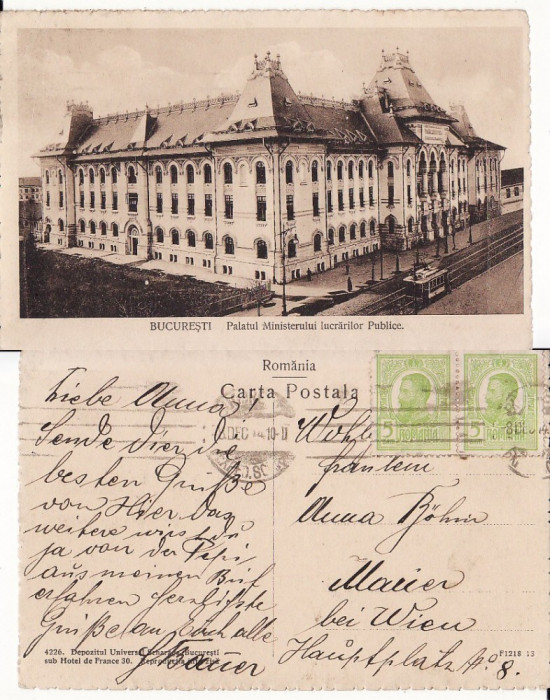 BUCUREȘTI Palatul Ministerului lucrărilor Publice.
România
Carta Postala
5 ROMANIA 5 ROMANIA
DEC 10-11
Liebe Anna!
Sende Dir die
besten Grüße
von Hier das
weitere wirst du
ja von der Pepi
aus meinen Brief
erfahren herzlichste
Grüße an Euch alle
Wohlg
fräulein
Anna Böhm
Mauer
bei Wien
Hauptplatz No 8.
4226. Depozitul Universal București
sub Hotel de France 30. Reproducția
F1218 13